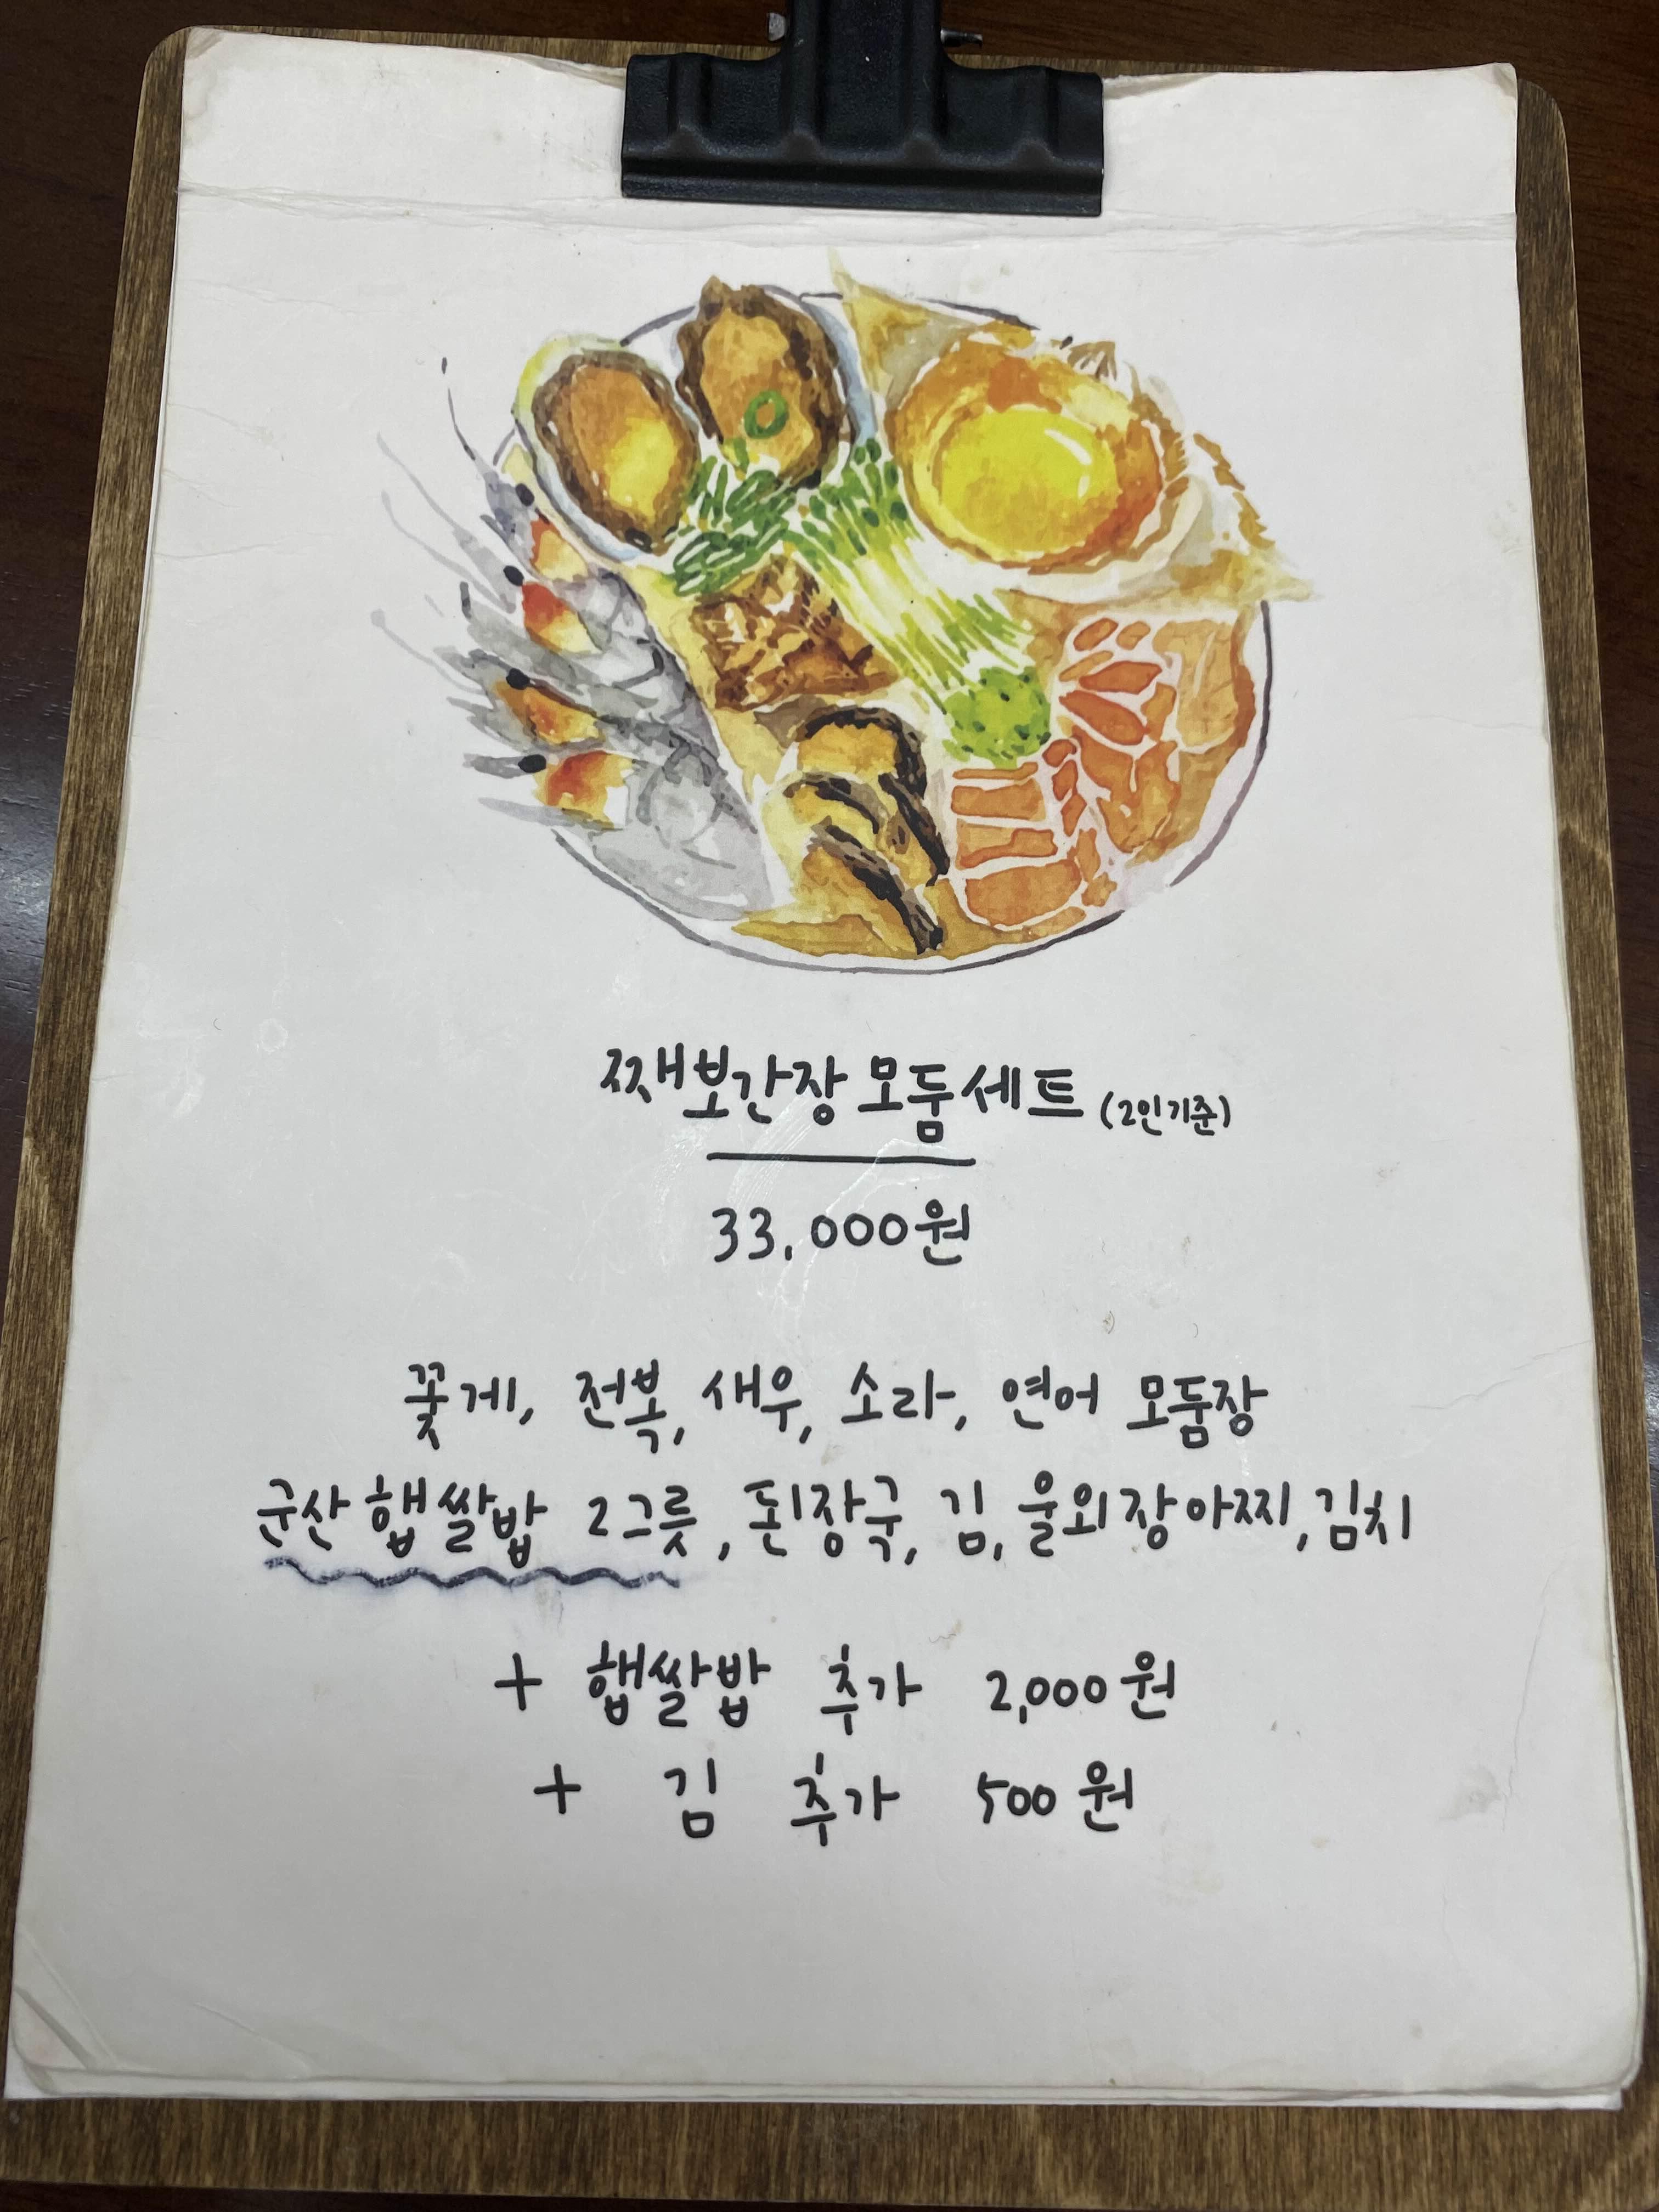 째보간장 모둠세트 (2인기준)
33,000원
꽃게, 전복, 새우, 소라, 연어 모둠장
군산 햅쌀밥 2그릇, 된장국, 김, 울외장아찌, 김치
+ 햅쌀밥 추가 2,000원
+ 김 추가 500원